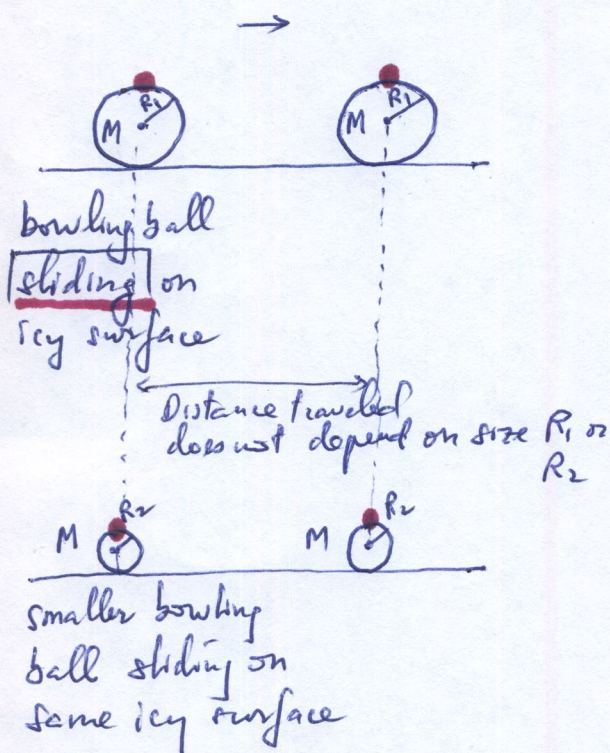 R1 R1
M M
bowling ball
sliding on
icy surface
Distance traveled
does not depend on size R1 or
R2
R2 R2
M M
smaller bowling
ball sliding on
same icy surface